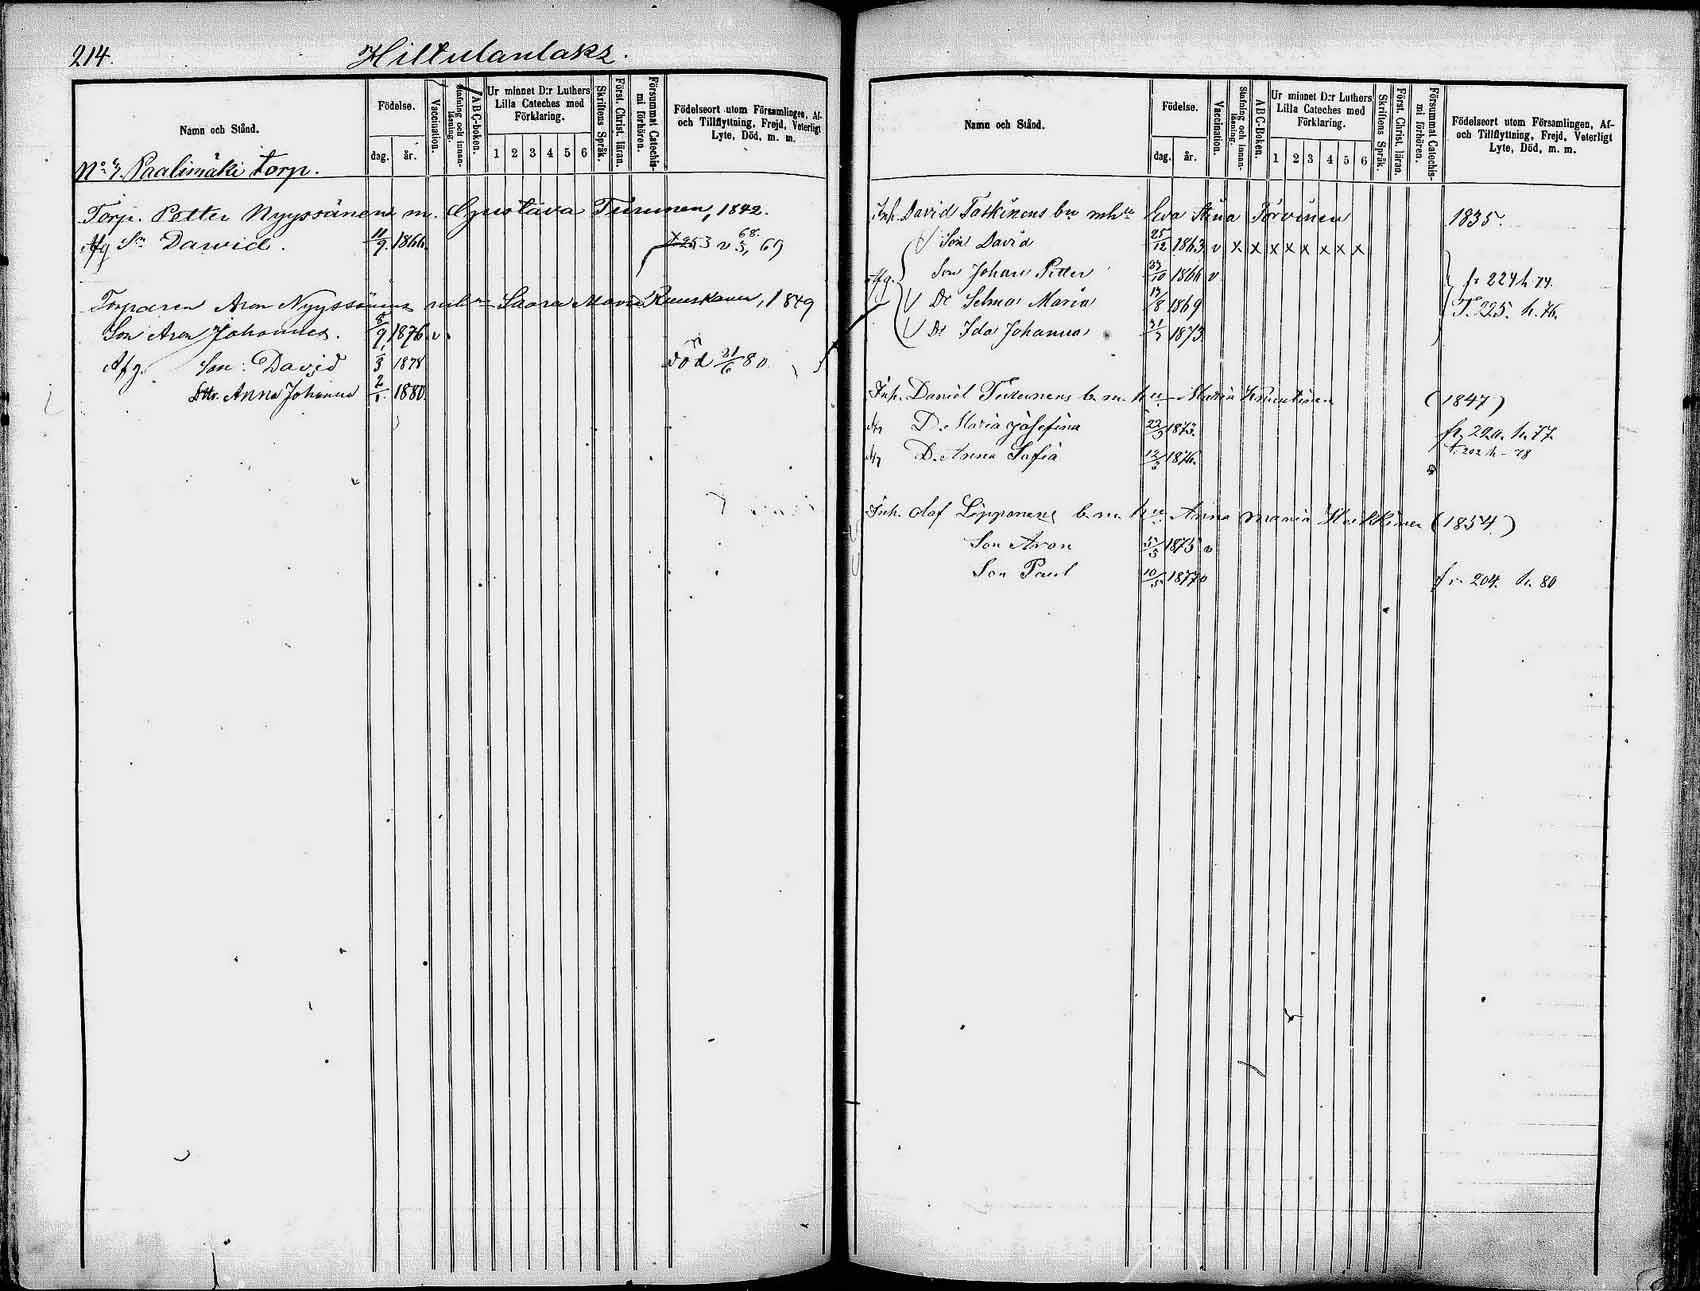 214.
Hiltulanlaks.
Namn och Stånd.
Födelse.
dag. år.
Vaccination.
Stafning och innan-
läsning.
ABC-boken.
Ur minnet D:r Luthers
Lilla Cateches med
Förklaring.
1 2 3 4 5 6
Skriftens Språk.
Först. Christ. läran.
Försummat Catechis-
mi förhören.
Födelseort utom Församlingen, Af-
och Tillflyttning, Frejd, Veterligt
Lyte, Död, m. m.
Paalimäki torp.
Torp. Petter Nyyssönens m. Gustava Turunen, 1842.
Afg Sn David. 11/9 1866.
Torparen Aron Nyyssönens mhr Saara Maria Ruuskanen, 1849
Son Aron Johannes. 8/9 1876. v.
Afg. Son: David 1878 död 21/6 80
Dttr. Anna Johanna 2/1 1880.
Namn och Stånd.
Födelse.
dag. år.
Vaccination.
Stafning och innan-
läsning.
ABC-Boken.
Ur minnet D:r Luthers
Lilla Cateches med
Förklaring.
1 2 3 4 5 6
Skriftens Språk.
Först. Christ. läran.
Försummat Catechis-
mi förhören.
Födelseort utom Församlingen, Af-
och Tillflyttning, Frejd, Veterligt
Lyte, Död, m. m.
Inh. David Taskinens Eva Stina 1835.
Son David 25/12 1863 v x x x x x x x x
Afg. Son Johan Petter 1866 v fr 224 h 74.
Dr Selma Maria 1869 T. 225. h. 76.
Dr Ida Johanna 1873
Inh. Daniel b. m. h Maria (1847)
D. Maria Josefina 1873. fr. 220. h. 77
D. Anna Sofia 1876. T. 202 h - 78
Inh. Olof Lipponens b. m. h Anna Maria Heikkinen (1854)
Son Aron 1875 v
Son Paul 10/5 1877 v fr. 204. h. 80